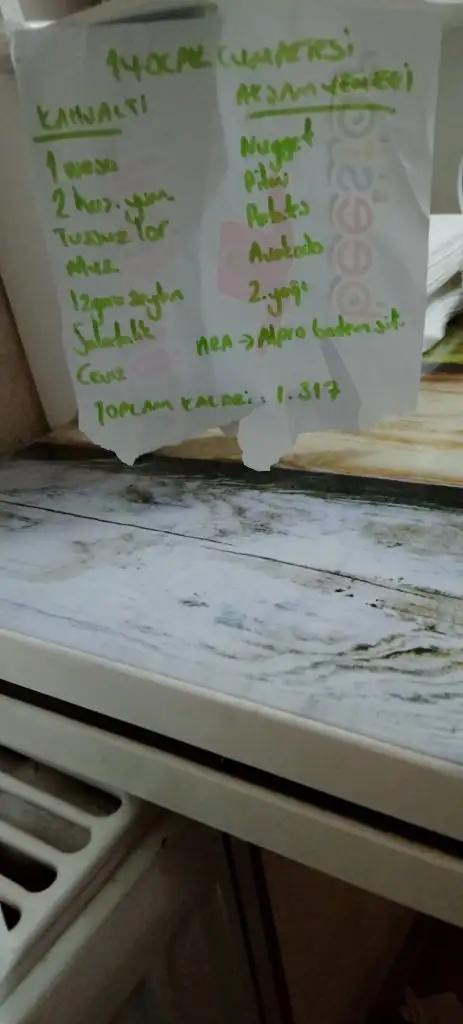 14 OCAK CUMARTESİ
KAHVALTI
1
2 haş. yum
Tuzsuz lor
Muz
Izgara zeytin
Salatalık
Ceviz
AKŞAM YEMEĞİ
Nugget
Pilav
Patates
Avokado
Z.yağı
ARA → Alpro badem süt.
TOPLAM KALORİ: 1.317